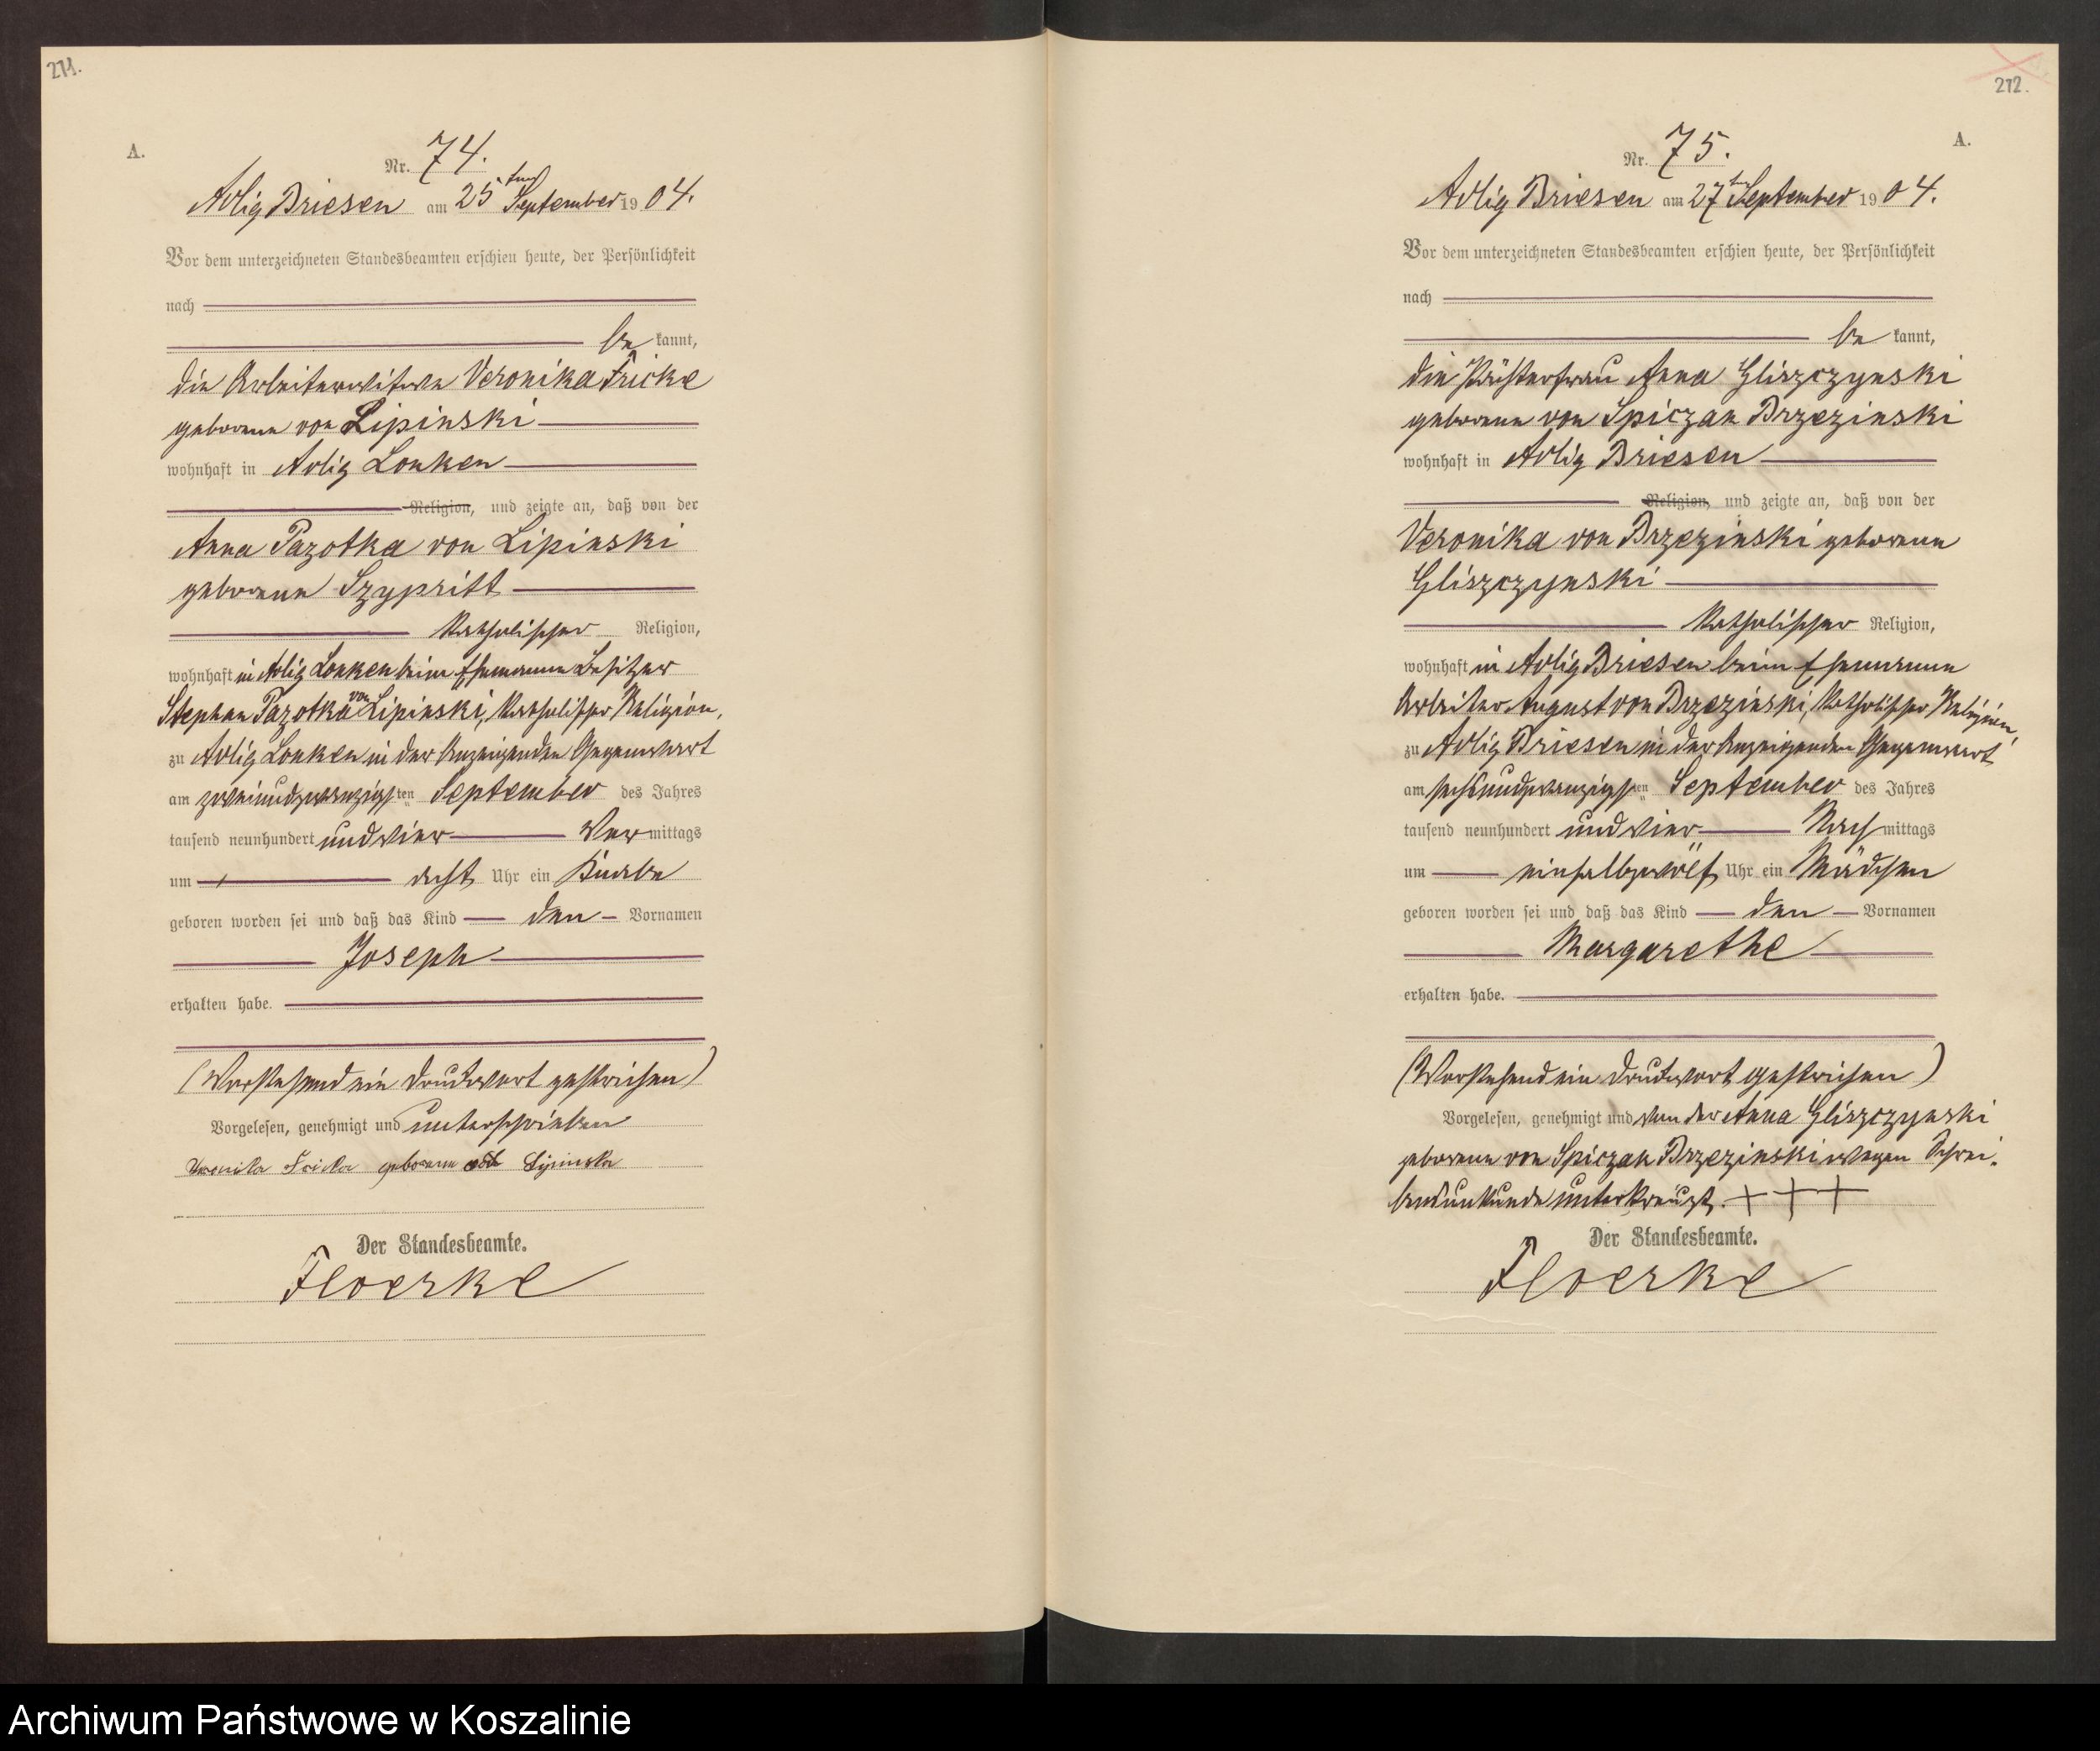 271.
A.
Nr. 74.
Adlig Briesen am 25ten September 1904.
Vor dem unterzeichneten Standesbeamten erschien heute, der Persönlichkeit
nach
be kannt,
die Arbeiterwitwe Veronika Fricke
geborene von Lipinski
wohnhaft in Adlig Lonken
Religion, und zeigte an, daß von der
Anna Pazotka von Lipinski
geborene Szypritt
katholischer Religion,
wohnhaft in Adlig Lonken beim Ehemanne Besitzer
Stephan Pazotka von Lipinski, katholischer Religion,
zu Adlig Lonken in der Anzeigenden Gegenwart
am zweiundzwanzigsten September des Jahres
tausend neunhundert und vier Vor mittags
um acht Uhr ein Knabe
geboren worden sei und daß das Kind den Vornamen
Joseph
erhalten habe.
(Vorstehend ein Druckwort gestrichen)
Vorgelesen, genehmigt und unterschrieben
geborene Lipinska
Der Standesbeamte.
Floerke
212.
A.
Nr. 75.
Adlig Briesen am 27ten September 1904.
Vor dem unterzeichneten Standesbeamten erschien heute, der Persönlichkeit
nach
be kannt,
die Küsterfrau Anna Gliszczynski
geborene von Spiczak Brzezinski
wohnhaft in Adlig Briesen
Religion, und zeigte an, daß von der
Veronika von Brzezinski geborene
Gliszczynski
katholischer Religion,
wohnhaft in Adlig Briesen beim Ehemanne
Arbeiter August von Brzezinski, katholischer Religion,
zu Adlig Briesen in der Anzeigenden Gegenwart
am sechsundzwanzigsten September des Jahres
tausend neunhundert und vier Nach mittags
um einhalbzwölf Uhr ein Mädchen
geboren worden sei und daß das Kind den Vornamen
Margarethe
erhalten habe.
(Vorstehend ein Druckwort gestrichen)
Vorgelesen, genehmigt und von der Anna Gliszczynski
geborene von Spiczak Brzezinski wegen Schrei-
bensunkunde unterkreuzt. + + +
Der Standesbeamte.
Floerke
Archiwum Państwowe w Koszalinie